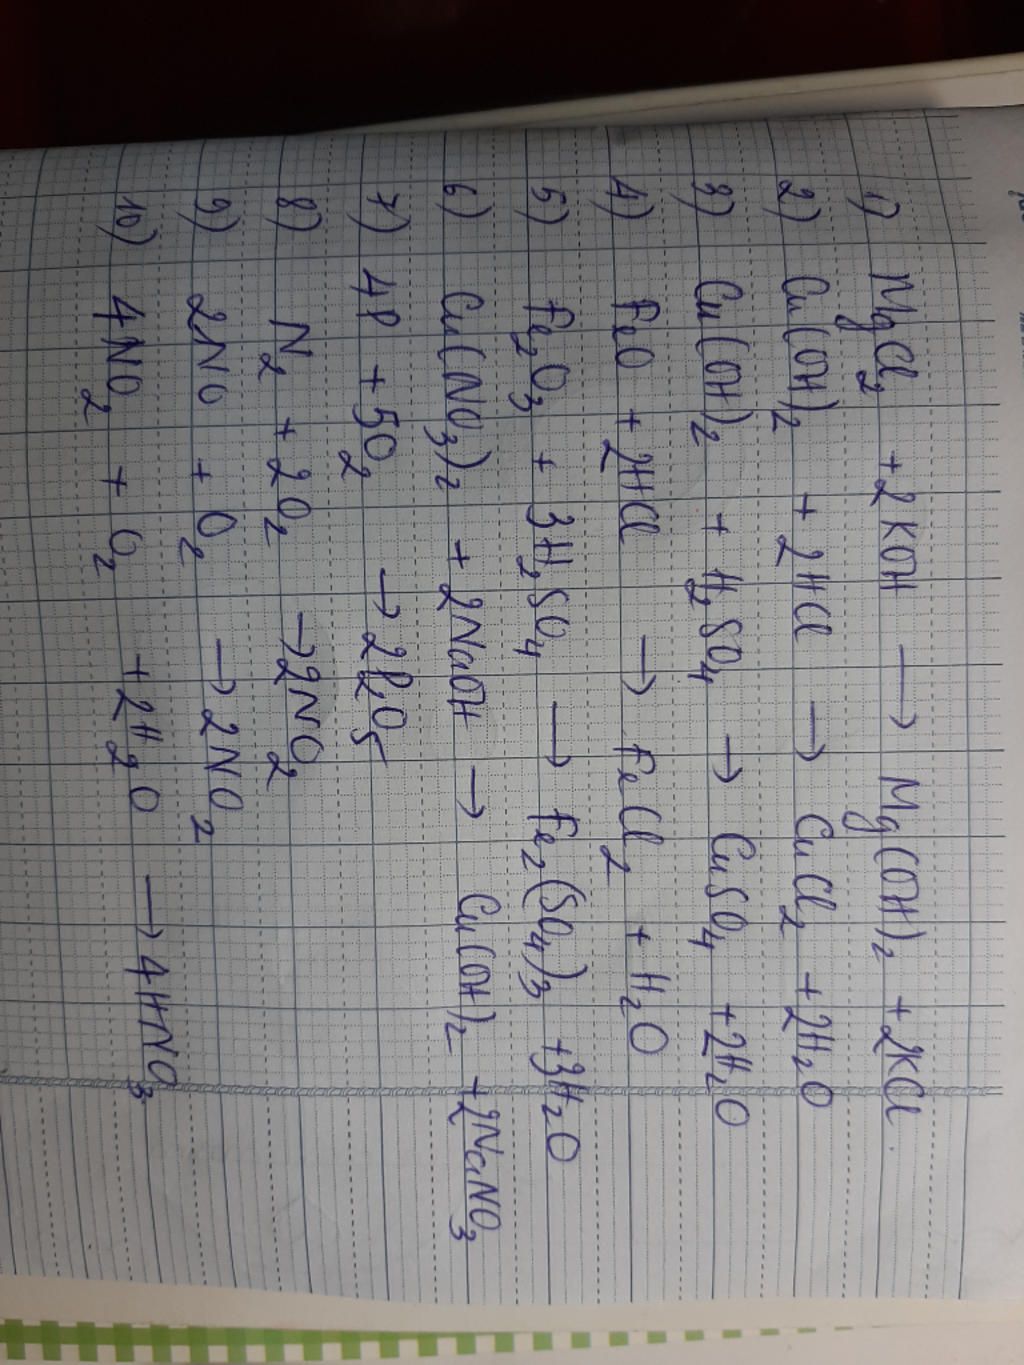 1) MgCl2 + 2KOH → Mg(OH)2 + 2KCl.
2) Cu(OH)2 + 2HCl → CuCl2 + 2H2O
3) Cu(OH)2 + H2SO4 → CuSO4 + 2H2O
4) FeO + 2HCl → FeCl2 + H2O
5) Fe2O3 + 3H2SO4 → Fe2(SO4)3 + 3H2O
6) Cu(NO3)2 + 2NaOH → Cu(OH)2 + 2NaNO3
7) 4P + 5O2 → 2P2O5
8) N2 + 2O2 → 2NO2
9) 2NO + O2 → 2NO2
10) 4NO2 + O2 + 2H2O → 4HNO3